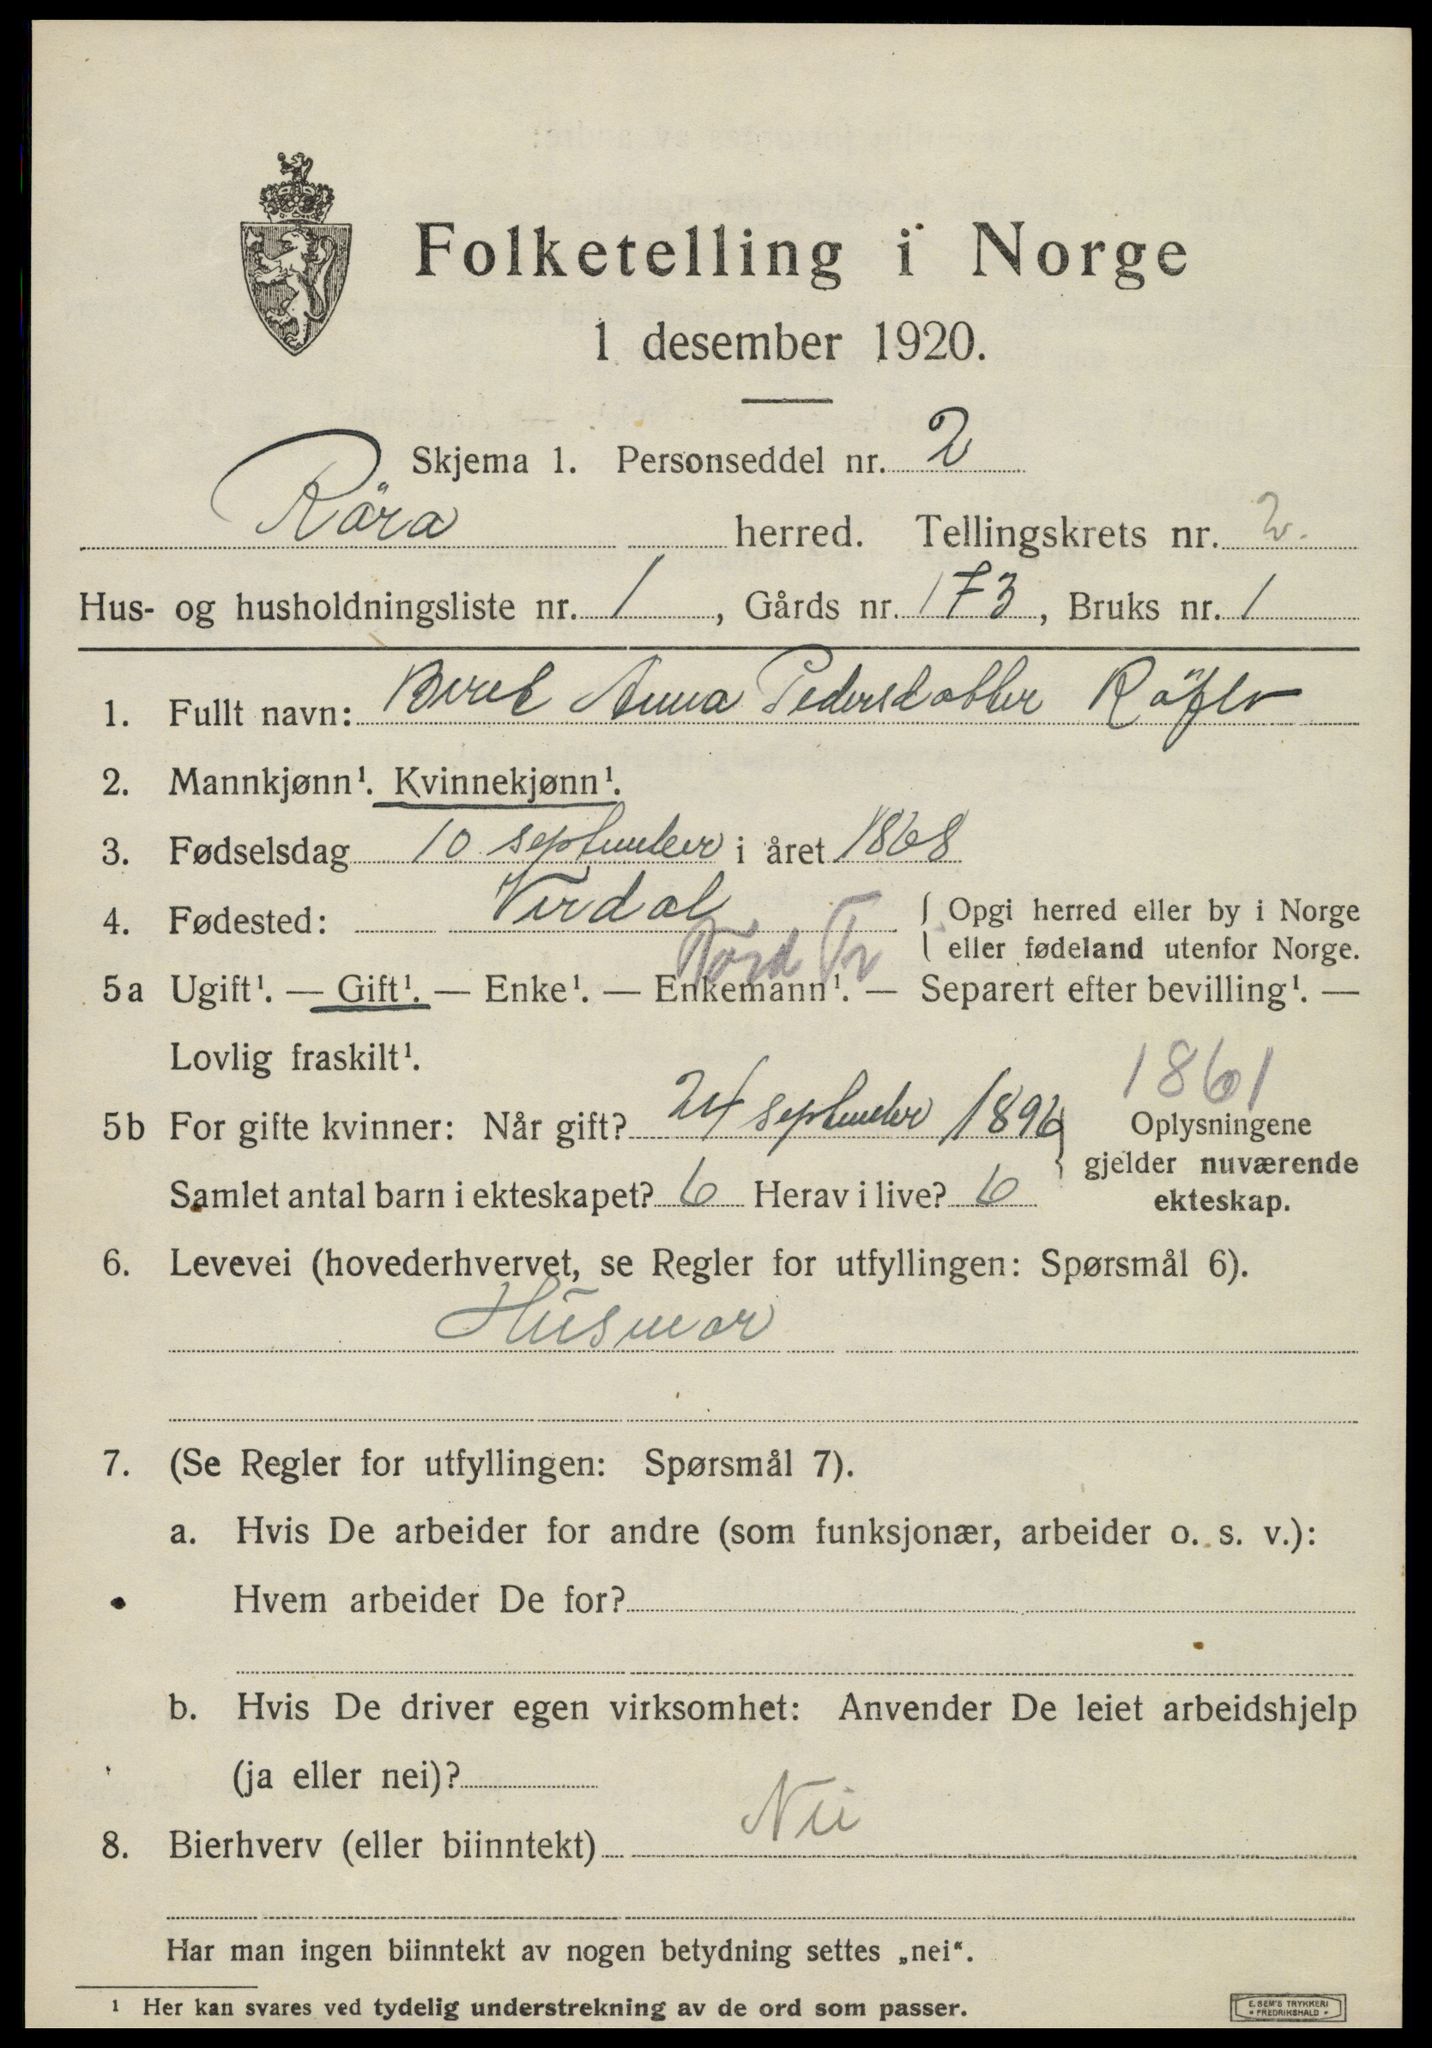 Folketelling i Norge
1 desember 1920.
Skjema 1. Personseddel nr. 2
Röra herred. Tellingskrets nr. 2.
Hus- og husholdningsliste nr. 1, Gårds nr. 173, Bruks nr. 1
1. Fullt navn: Beret Anna Pedersdatter
2. Mannkjønn¹. Kvinnekjønn¹.
3. Fødselsdag 10 september i året 1868
4. Fødested: Verdal { Opgi herred eller by i Norge
{ eller fødeland utenfor Norge.
Nord Tr
5a Ugift¹. — Gift¹. — Enke¹. — Enkemann¹. — Separert efter bevilling¹. —
Lovlig fraskilt¹.
1861
5b For gifte kvinner: Når gift? 24 september 1896 } Oplysningene
gjelder nuværende
Samlet antal barn i ekteskapet? 6 Herav i live? 6 ekteskap.
6. Levevei (hovederhvervet, se Regler for utfyllingen: Spørsmål 6).
Husmor
7. (Se Regler for utfyllingen: Spørsmål 7).
a. Hvis De arbeider for andre (som funksjonær, arbeider o. s. v.):
Hvem arbeider De for?
b. Hvis De driver egen virksomhet: Anvender De leiet arbeidshjelp
(ja eller nei)?
8. Bierhverv (eller biinntekt) Nei
Har man ingen biinntekt av nogen betydning settes „nei“.
¹ Her kan svares ved tydelig understrekning av de ord som passer.
E. SEM'S TRYKKERI
• FREDRIKSHALD •